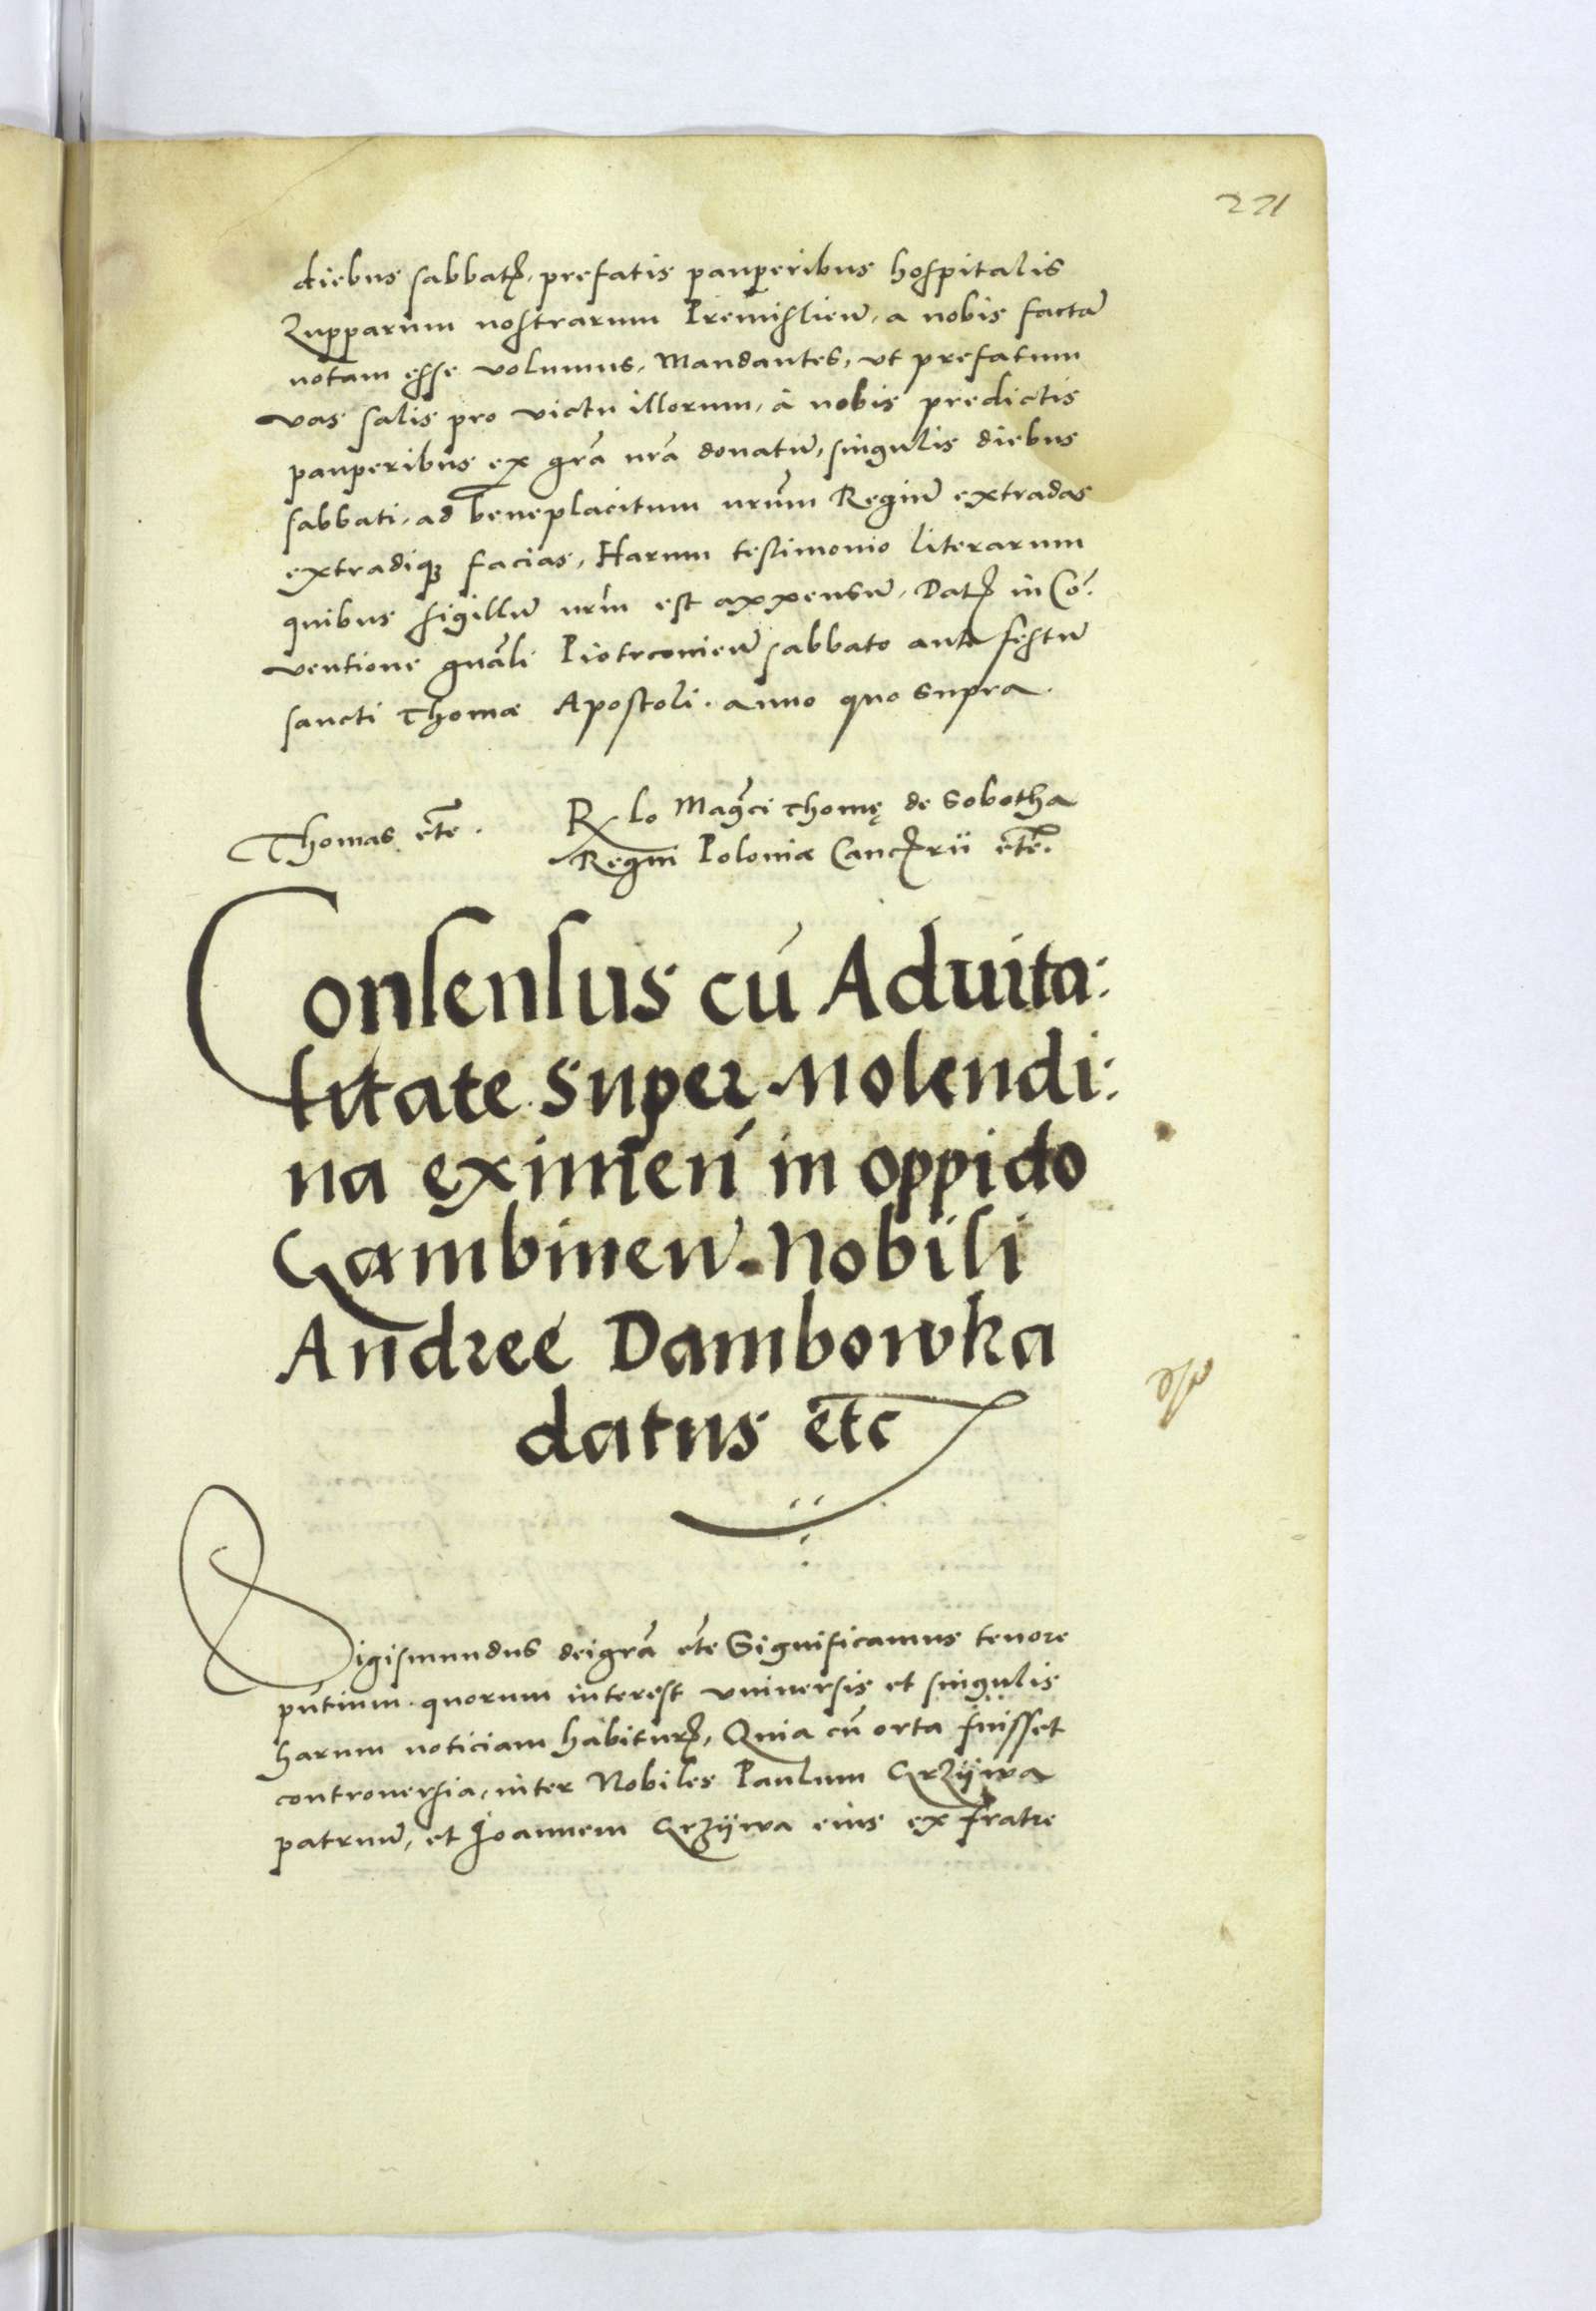 221
diebus sabbatꝭ, prefatis pauperibus hospitalis
Zupparum nostrarum Premislien̄, a nobis factā
notam esse volumus, Mandantes, vt prefatum
vas salis pro victu illorum, à nobis predictis
pauperibus ex grā nrā donatū, singulis diebus
sabbati, ad beneplacitum nrūm Regiū extradas
extradiqꝫ facias, Harum testimonio literarum
quibus sigillū nrm̄ est appensū, Datꝭ in Cō:
ventione gnāli Piotrcouien̄ sabbato ante festū
sancti Thomæ Apostoli. anno quo supra.
Thomas etc̄.
R lo Mag̃ci Thomę de Sobotha
Regni Poloniæ Cancꝭrii etc̄.
Consensus cū Aduita:
litate super Molendi:
na eximen̄ in oppido
Gambinen̄. Nobili
Andreé Dambowka
datus etc̄
Sigismundus dei grā etc̄ Significamus tenore
pn̄tium. quorum interest vniuersis et singulis
harum noticiam habiturꝭ, Quia cū orta fuisset
controuersia, inter Nobiles Paulum Grzÿwa
patruū, et Joannem Grzÿwa eius ex fratre